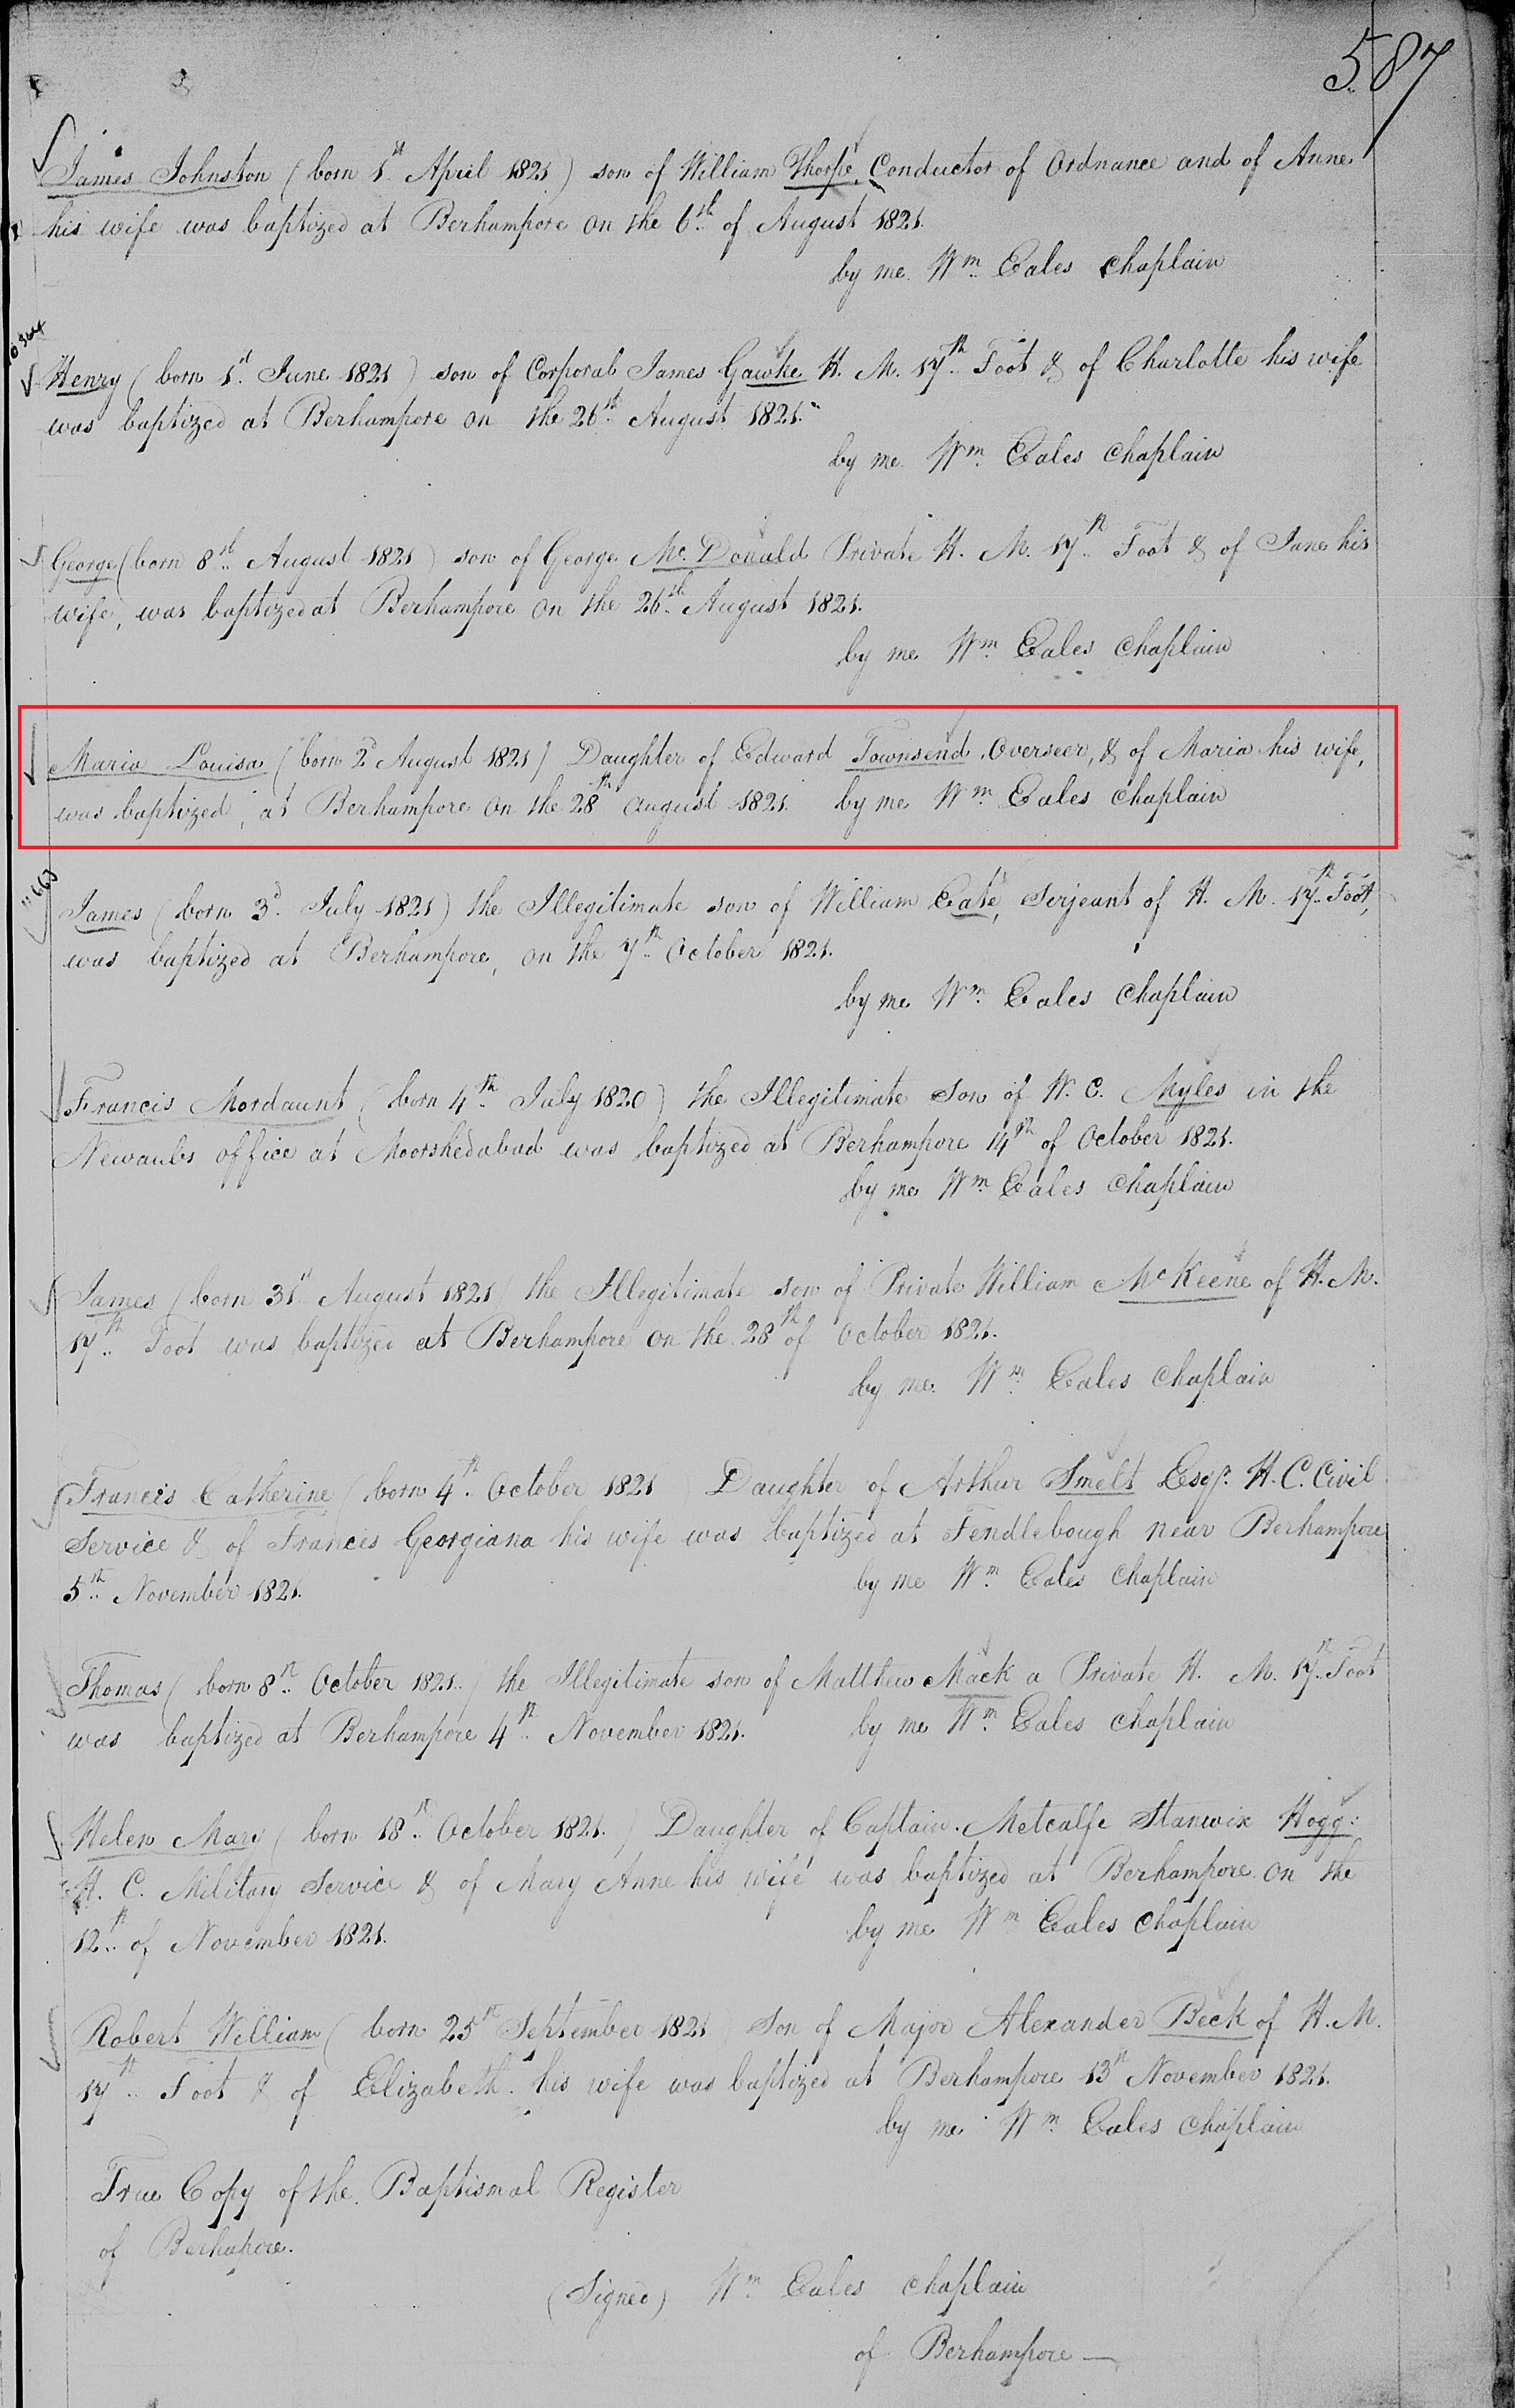 587
James Johnston (born 1st April 1821) son of William Thorpe, Conductor of Ordnance and of Anne
his wife was baptized at Berhampore on the 6th of August 1821.
by me Wm Eales Chaplain
Henry (born 1st June 1821) son of Corporal James Gawke H. M. 17th Foot & of Charlotte his wife
was baptized at Berhampore on the 26th August 1821.
by me Wm Eales Chaplain
George (born 8th August 1821) son of George Mc. Donald Private H. M. 17th Foot & of Jane his
wife, was baptized at Berhampore on the 26th August 1821.
by me Wm Eales Chaplain
Maria Louisa (born 2d August 1821) Daughter of Edward Townsend Overseer, & of Maria his wife,
was baptized, at Berhampore on the 28th august 1821. by me Wm Eales Chaplain
James (born 3d July 1821) the Illegitimate son of William Cate, Serjeant of H. M. 17th Foot,
was baptized at Berhampore, on the 7th October 1821.
by me Wm Eales Chaplain
Francis Mordaunt (born 4th July 1820) the Illegitimate Son of W. C. Myles in the
Newaubs office at Moorshedabad was baptized at Berhampore 14th of October 1821.
by me Wm Eales Chaplain
James (born 31st August 1821) the Illegitimate son of Private William McKeene of H. M.
17th Foot was baptized at Berhampore on the 28th of October 1821.
by me Wm Eales Chaplain
Francis Catherine (born 4th October 1821) Daughter of Arthur Smelt Esqr. H. C. Civil
Service & of Francis Georgiana his wife was baptized at Fendlebough near Berhampore
5th November 1821. by me Wm Eales Chaplain
Thomas (born 8th October 1821.) the Illegitimate son of Matthew Mack a Private H. M. 17th Foot
was baptized at Berhampore 4th November 1821. by me Wm Eales Chaplain
Helen Mary (born 18th October 1821.) Daughter of Captain Metcalfe Stanwix Hogg:
H. C. Military Service & of Mary Anne his wife was baptized at Berhampore on the
12th of November 1821. by me Wm Eales Chaplain
Robert William (born 25th September 1821) Son of Major Alexander Beck of H. M.
17th Foot & of Elizabeth his wife was baptized at Berhampore 13th November 1821.
by me Wm Eales Chaplain
True Copy of the Baptismal Register
of Berhapore.
(Signed) Wm Eales Chaplain
of Berhampore —